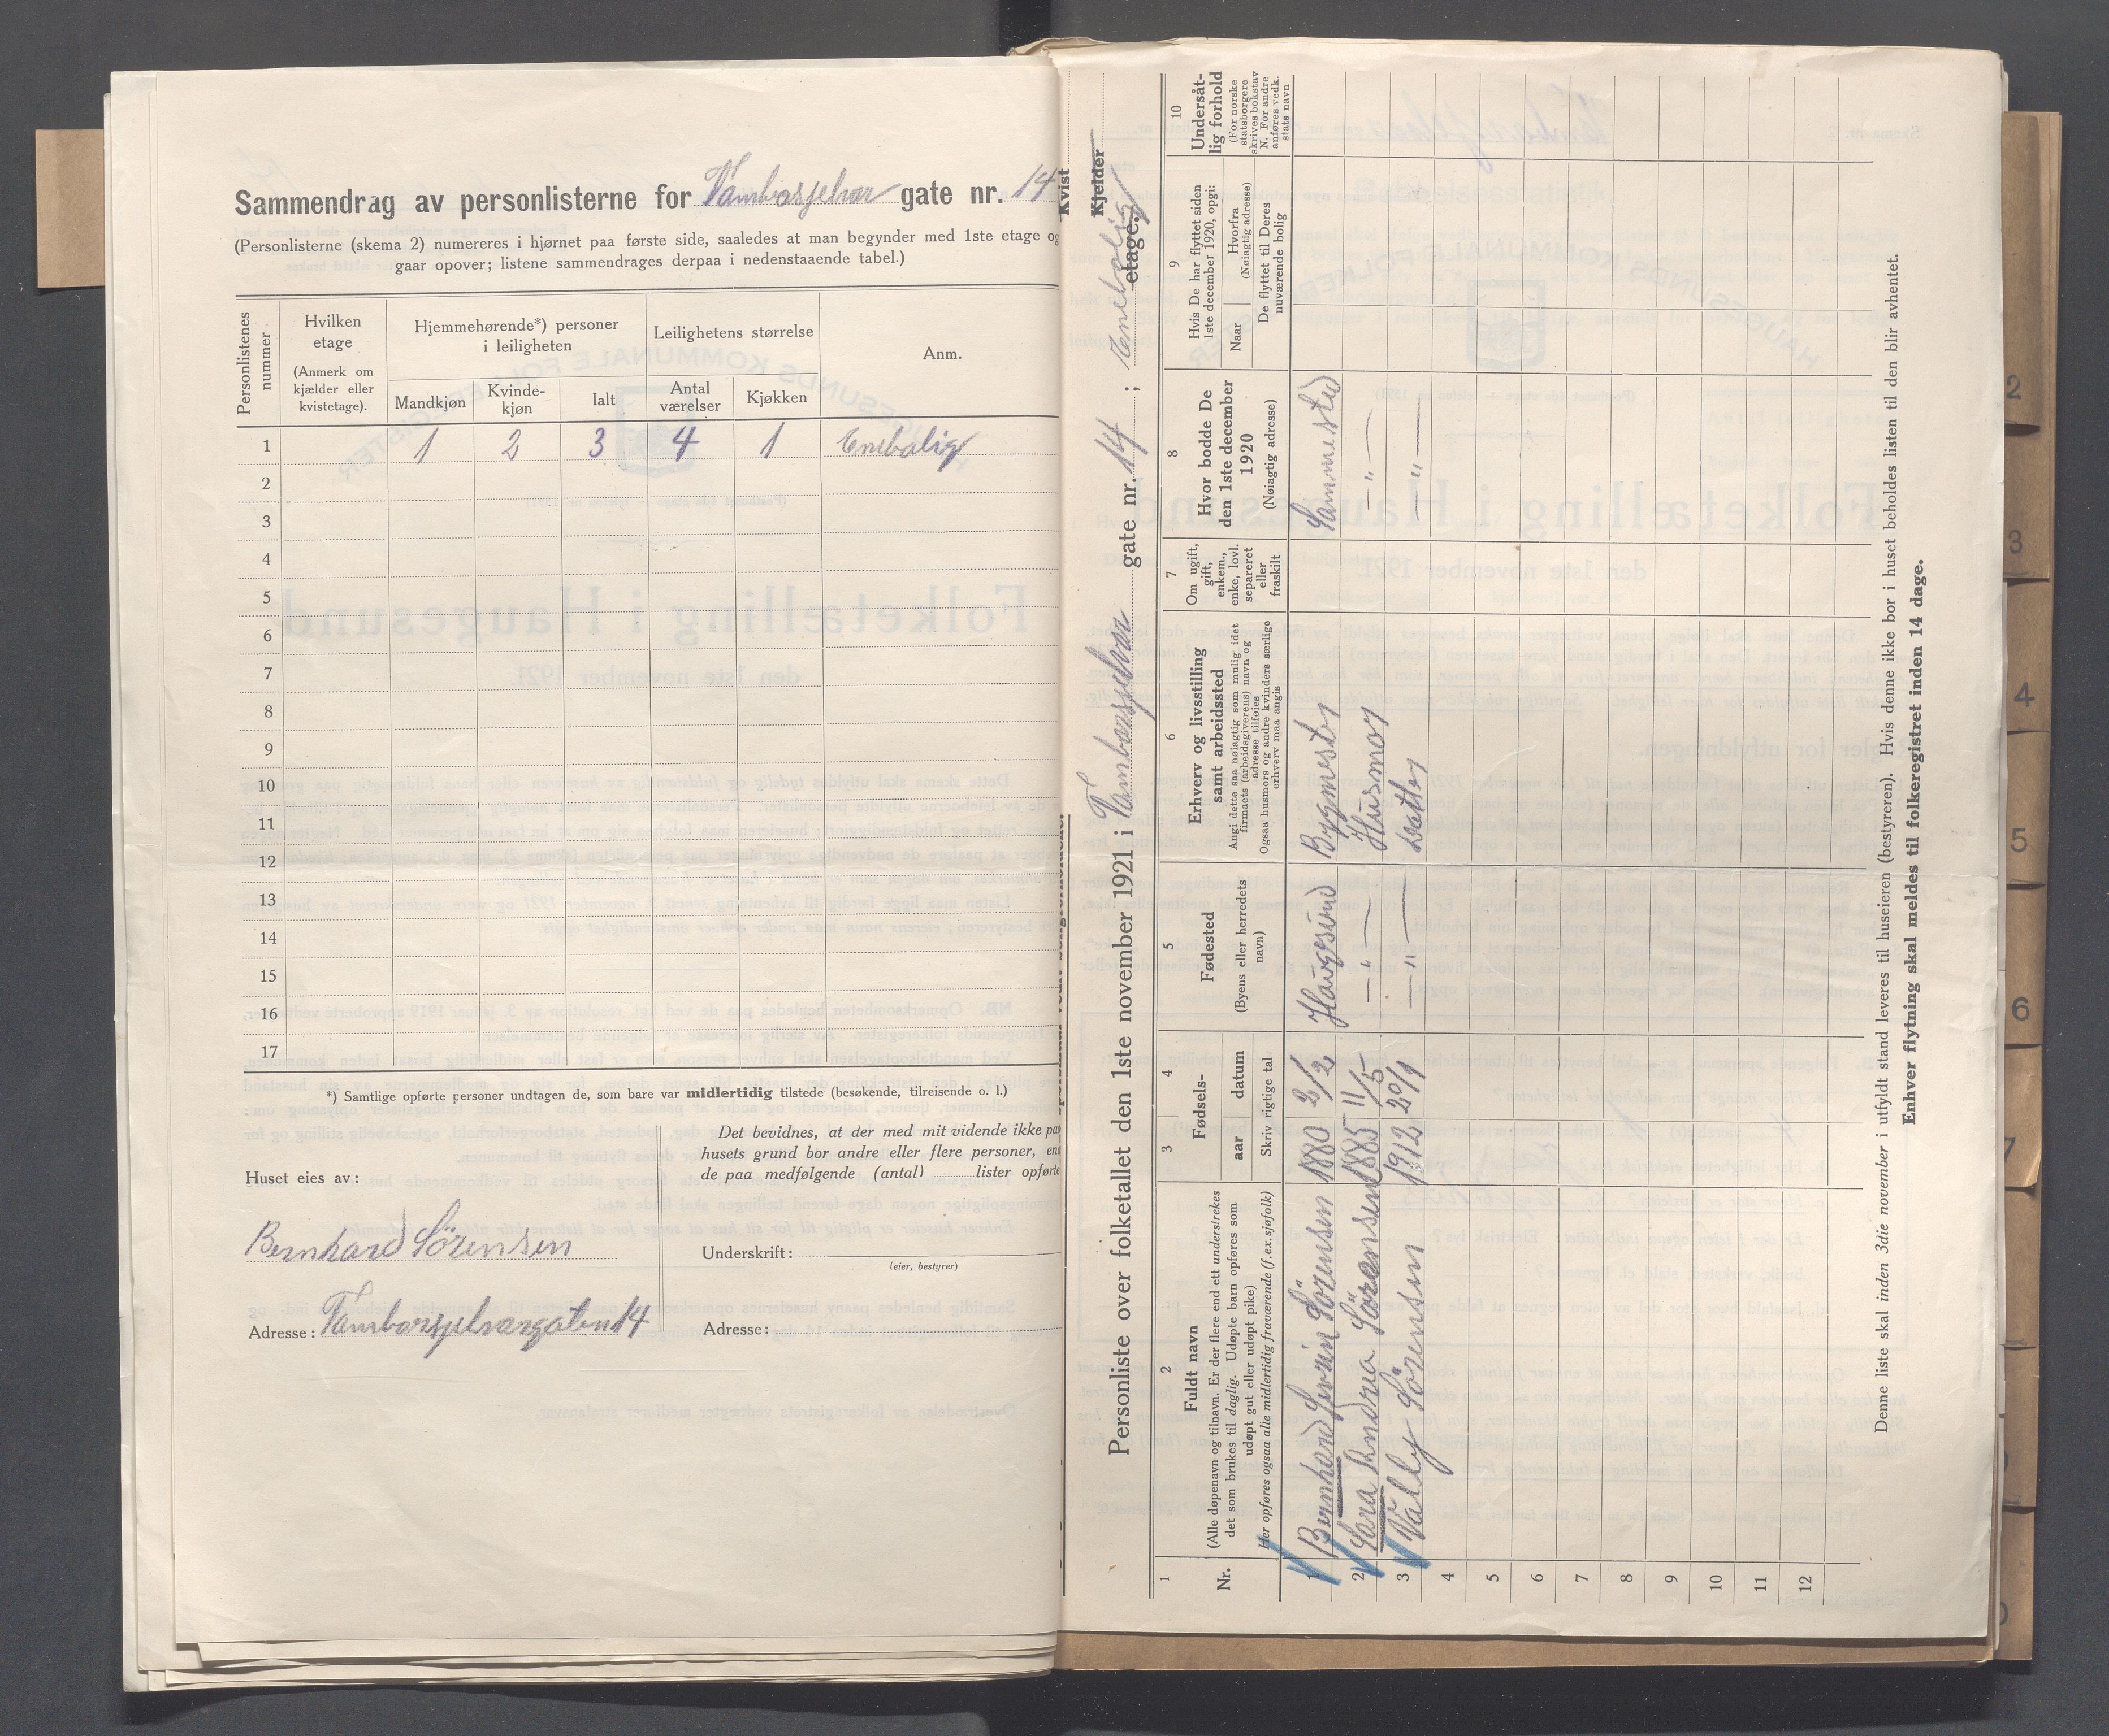 Sammendrag av personlisterne for Tambarsjelvar gate nr. 14
(Personlisterne (skema 2) numereres i hjørnet paa første side, saaledes at man begynder med 1ste etage og
gaar opover; listene sammendrages derpaa i nedenstaaende tabel.)
Personlistenes nummer
Hvilken etage
(Anmerk om kjælder eller kvistetage).
Hjemmehørende*) personer i leiligheten
Mandkjøn
Kvinde-kjøn
Ialt
Leilighetens størrelse
Antal værelser
Kjøkken
Anm.
1 1 2 3 4 1 Enebolig
2
3
4
5
6
7
8
9
10
11
12
13
14
15
16
17
*) Samtlige opførte personer undtagen de, som bare var midlertidig tilstede (besøkende, tilreisende o. l.)
Huset eies av:
Bernhard Sörensen
Adresse: Tambarsjelvargaten 14
Det bevidnes, at der med mit vidende ikke paa
husets grund bor andre eller flere personer, end
de paa medfølgende (antal) lister opførte
Underskrift:
(eier, bestyrer)
Adresse:
Kvist
Kjelder
etage.
Personliste over folketallet den 1ste november 1921 i Tambarsjelvar gate nr. 14 ; Enebolig
1
Nr.
2
Fuldt navn
(Alle døpenavn og tilnavn. Er der flere end ett understrekes
det som brukes til daglig. Udøpte barn opføres som
udøpt gut eller udøpt pike)
Her opføres ogsaa alle midlertidig fraværende (f.ex. sjøfolk)
3
4
Fødsels-
aar
datum
Skriv rigtige tal
5
Fødested
(Byens eller herredets
navn)
6
Erhverv og livsstilling
samt arbeidssted
Angi dette saa nøiagtig som mulig idet
firmaets (arbeidsgiverens) navn og
adresse tilføies
Ogsaa husmors og andre kvinders særlige
erhverv maa angis
7
Om ugift,
gift,
enkem.,
enke, lovl.
separeret
eller
fraskilt
8
Hvor bodde De
den 1ste december
1920
(Nøiagtig adresse)
9
Hvis De har flyttet siden
1ste december 1920, opgi:
Naar
Hvorfra
(Nøiagtig adresse)
De flyttet til Deres
nuværende bolig
10
Undersåt-
lig forhold
(For norske
statsborgere
skrives bokstav
N. For andre
anføres vedk.
stats navn
1 Bernhard Severin Sörensen 1880 2/2 Haugesund Bygmester Sammested
2 Sara Andrea Sörensen 1885 11/5 — „ — Husmor — „ —
3 Vally Sörensen 1912 20/9 — „ — Datter — „ —
4
5
6
7
8
9
10
11
12
Denne liste skal inden 3die november i utfyldt stand leveres til huseieren (bestyreren). Hvis denne ikke bor i huset beholdes listen til den blir avhentet.
Enhver flytning skal meldes til folkeregistret inden 14 dage.
2
3
4
5
6
7